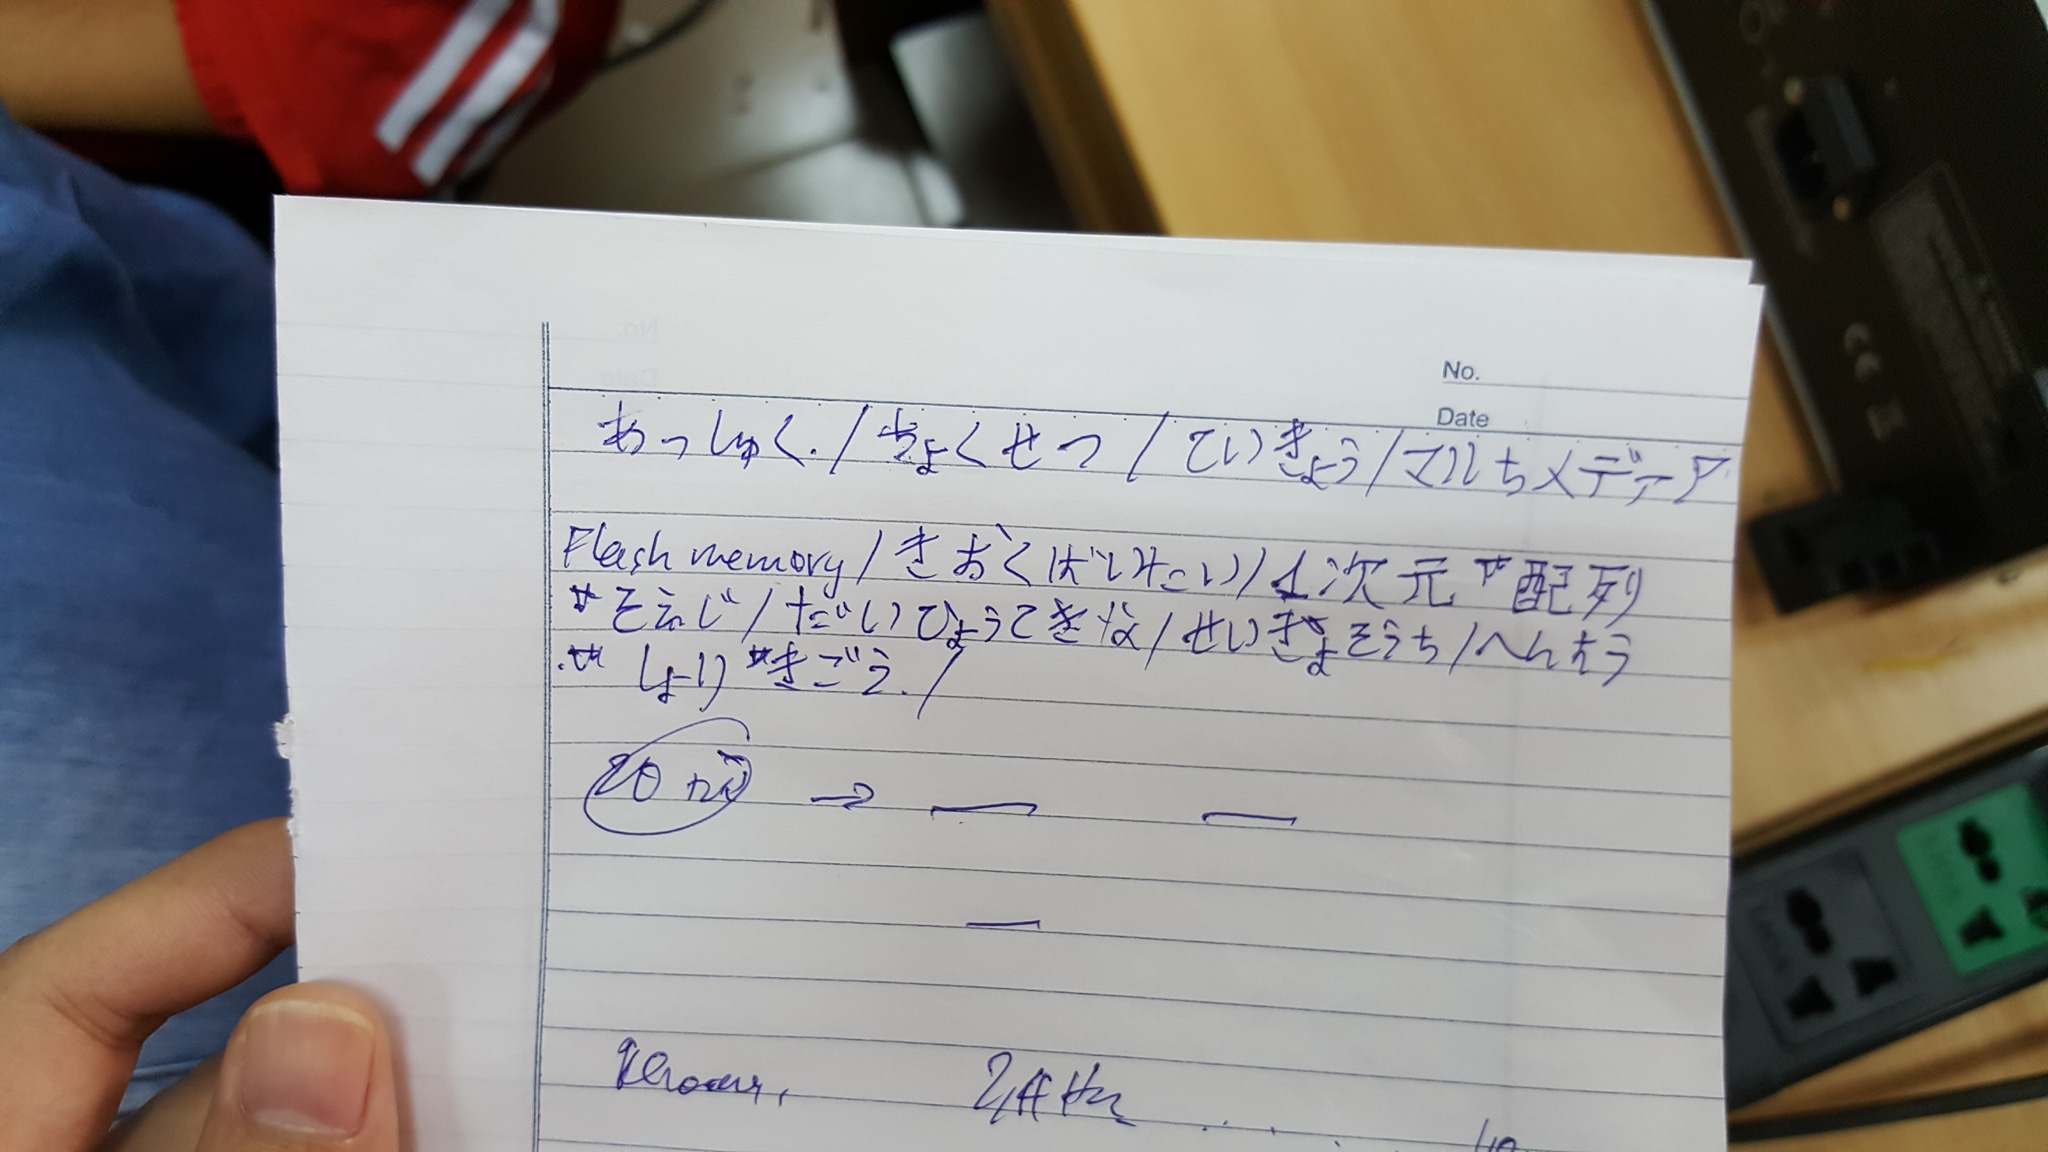 No.
Date
あっしゅく. / ちょくせつ / ていきょう / マルちメディア
Flash memory / きおくばいたい / 1次元 配列
そえじ / だいひょうてきな / せいぎょそうち / へんちょう
しょり きごう. /
20 →
CE